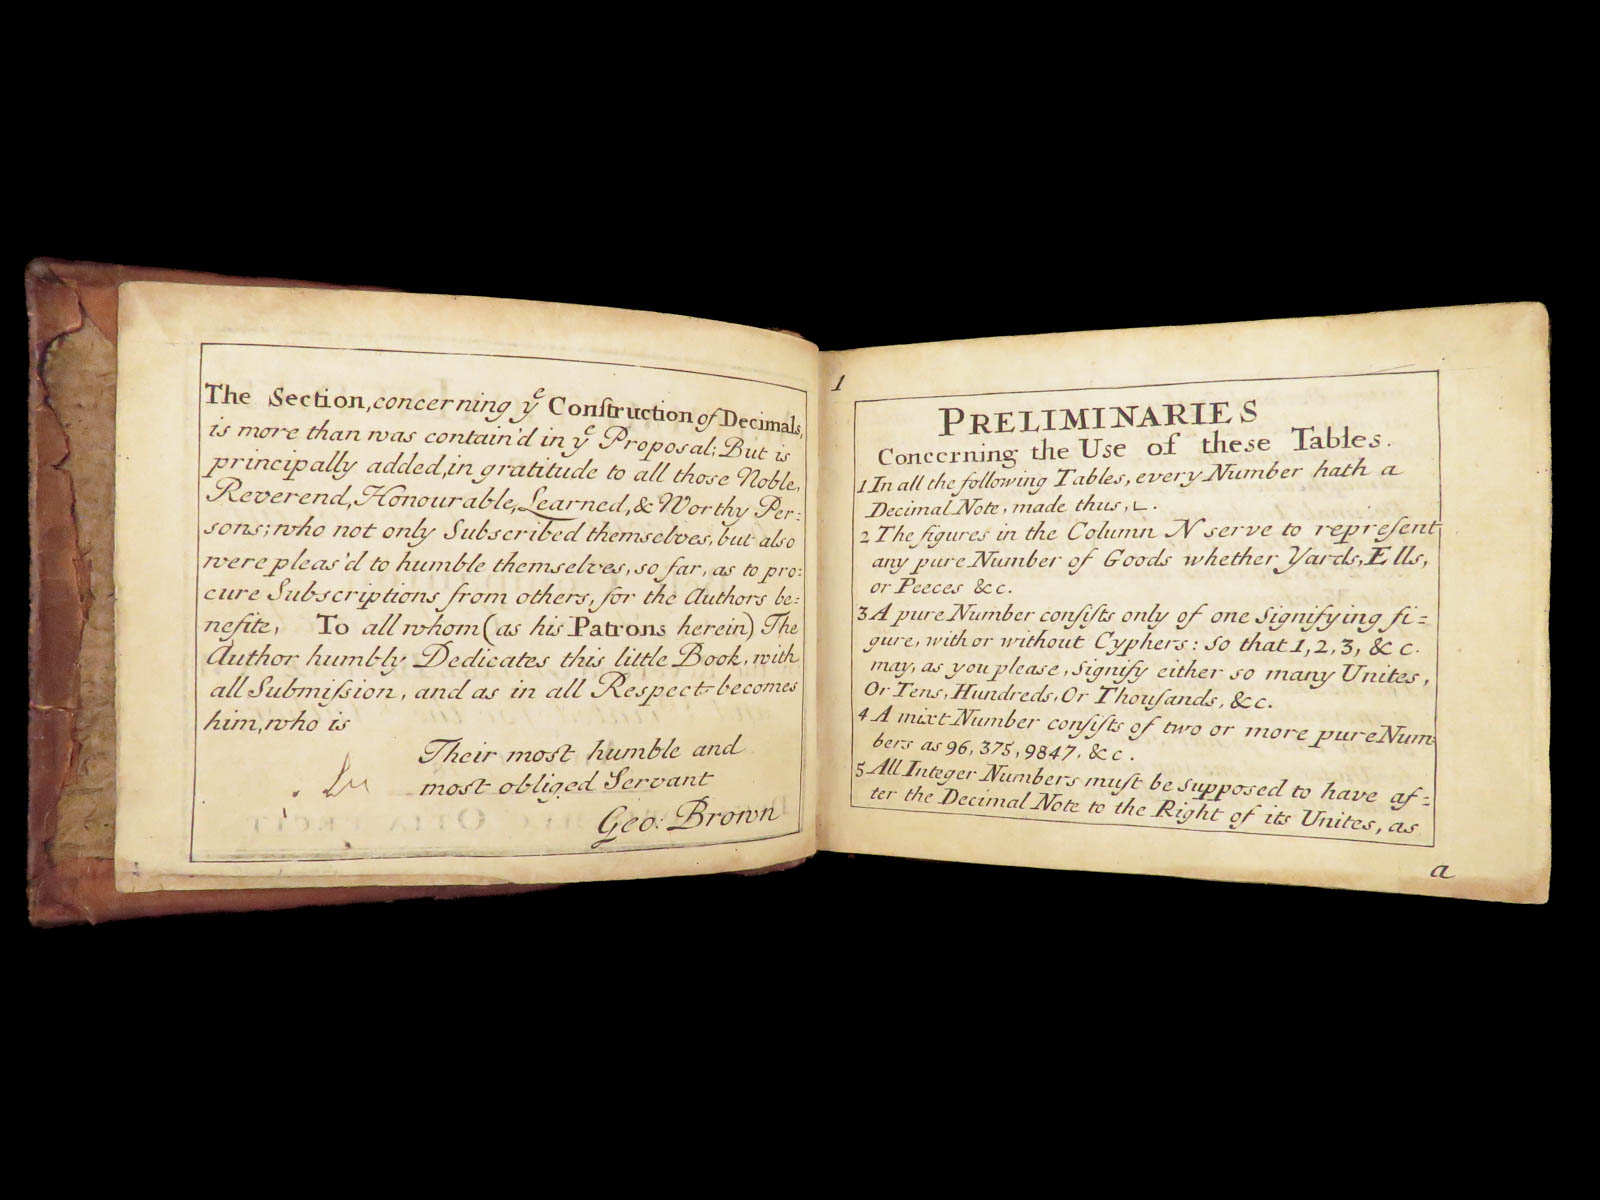 The Section, concerning yᵉ Conſtruction of Decimals,
is more than was contain'd in yᵉ Proposal; But is
principally added, in gratitude to all those Noble,
Reverend, Honourable, Learned, & Worthy Per=
sons; who not only Subscribed themselves, but also
were pleas'd to humble themselves, so far, as to pro=
cure Subscriptions from others, for the Authors be=
nefite, To all whom (as his Patrons herein) The
Author humbly Dedicates this little Book, with
all Submiſsion, and as in all Respect becomes
him, who is
Their most humble and
most obliged Servant
Geo: Brown
1
PRELIMINARIES
Concerning the Use of these Tables.
1 In all the following Tables, every Number hath a
Decimal Note, made thus, ∟.
2 The figures in the Column N serve to repreſent
any pure Number of Goods whether Yards, Ells,
or Peeces &c.
3 A pure Number conſiſts only of one Signifying fi=
gure, with or without Cyphers: So that 1, 2, 3, & c.
may, as you please, Signify either so many Unites,
Or Tens, Hundreds, Or Thouſands, &c.
4 A mixt Number conſiſts of two or more pure Num
bers as 96, 375, 9847, &c.
5 All Integer Numbers muſt be supposed to have af=
ter the Decimal Note to the Right of its Unites, as
a